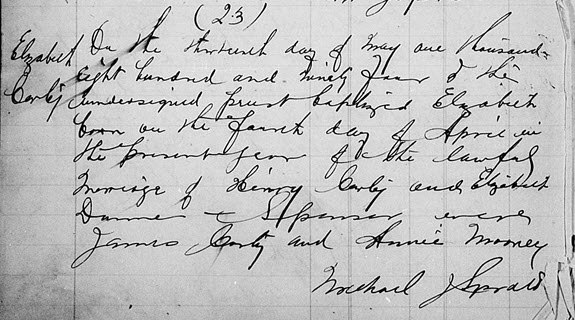 (23)
Elizabeth On the thirteenth day of May one thousand
eight hundred and ninety four I the
Corby undersigned priest baptized Elizabeth
born on the fourth day of April in
the present year of the lawful
marriage of Henry Corby and Elizabeth
Sponsors were
James Corby and Annie Mooney
Michael J